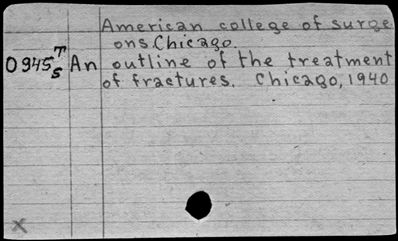 American college of surge
ons. Chicago.
0945 T S An outline of the treatment
of fractures. Chicago, 1940
x